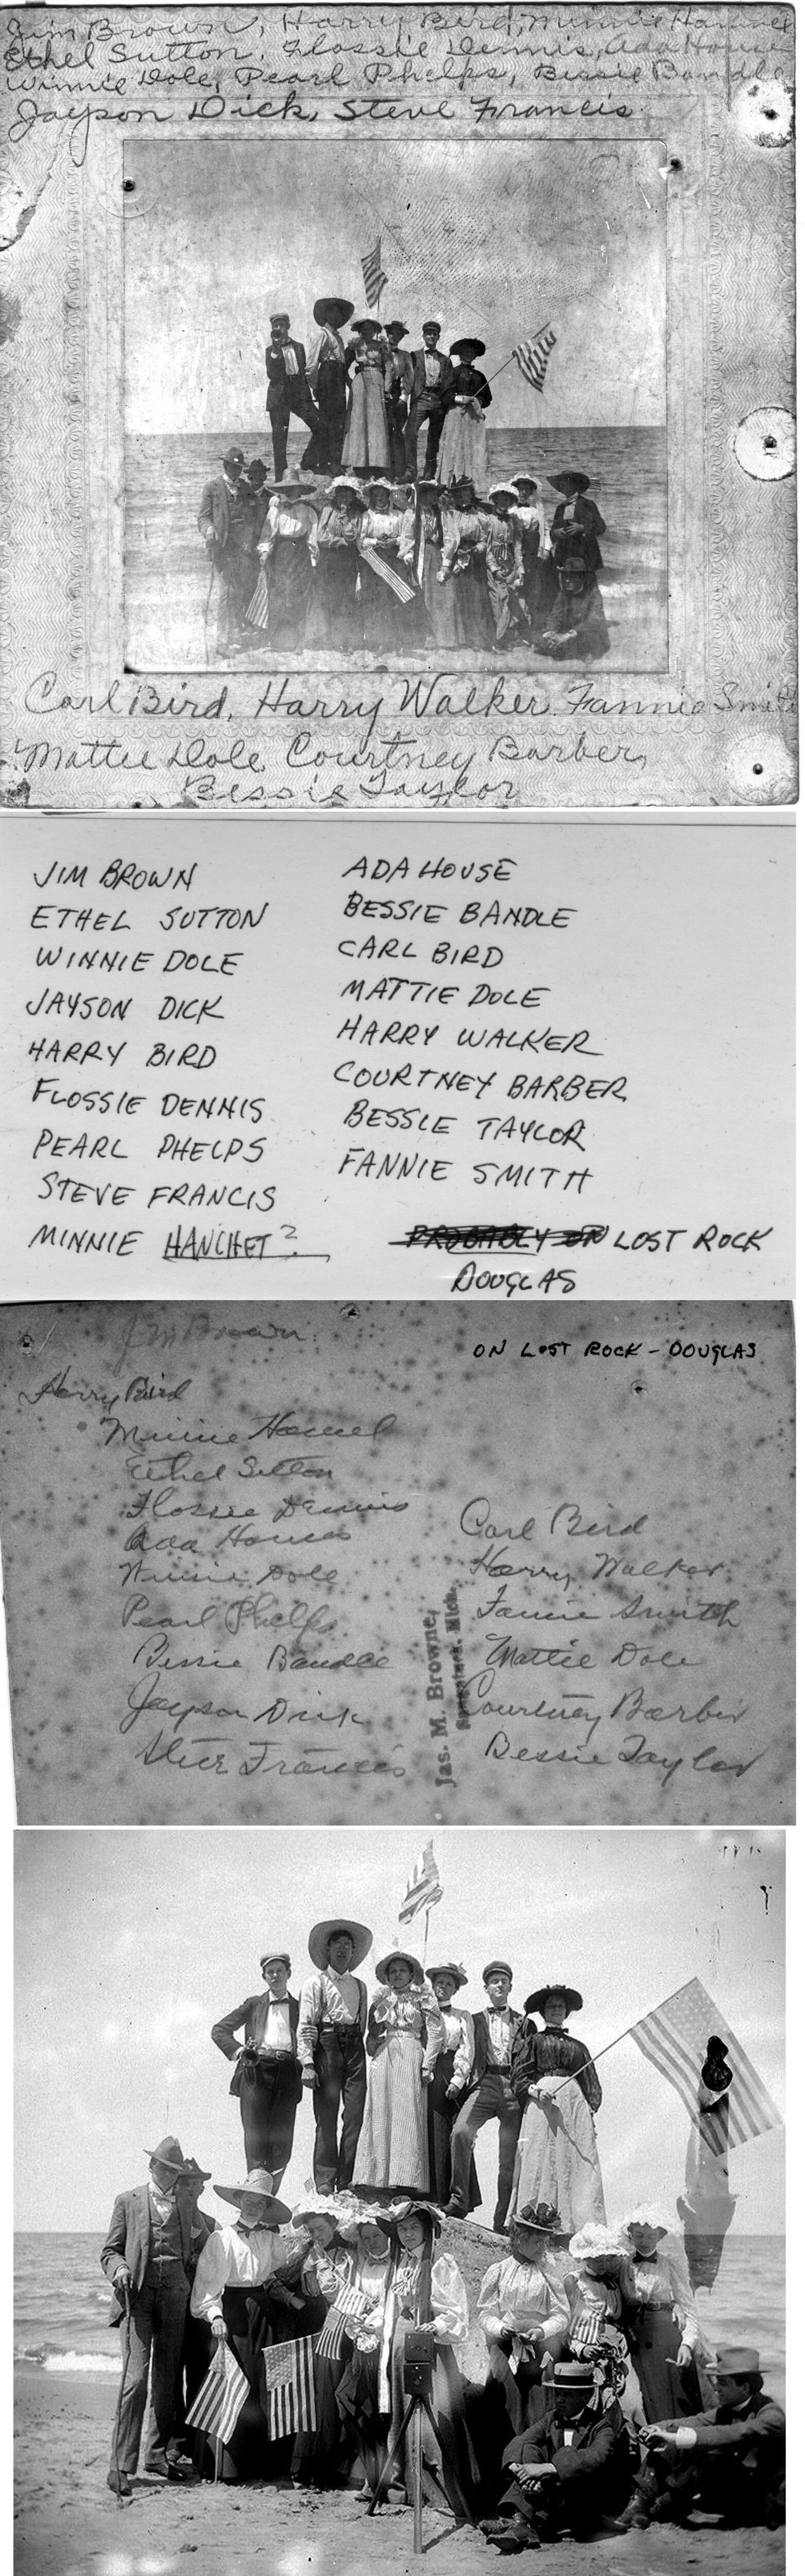 Jim Brown, Harry Bird, Minnie
Ethel Sutton, Flossie Dennis, Ada House
Winnie Dole, Pearl Phelps, Bessie Bandle
Jayson Dick, Steve Francis
Carl Bird, Harry Walker, Fannie Smith
Mattie Dole, Courtney Barber,
Bessie Taylor
JIM BROWN
ETHEL SUTTON
WINNIE DOLE
JAYSON DICK
HARRY BIRD
FLOSSIE DENNIS
PEARL PHELPS
STEVE FRANCIS
MINNIE HANCHET?
ADA HOUSE
BESSIE BANDLE
CARL BIRD
MATTIE DOLE
HARRY WALKER
COURTNEY BARBER
BESSIE TAYLOR
FANNIE SMITH
PROBABLY ON LOST ROCK
DOUGLAS
ON LOST ROCK - DOUGLAS
Jim Brown
Harry Bird
Minnie
Ethel Sutton
Flossie Dennis
Ada House
Winnie Dole
Pearl Phelps
Bessie Bandle
Jayson Dick
Steve Francis
Carl Bird
Harry Walker
Fannie Smith
Mattie Dole
Courtney Barber
Bessie Taylor
Jas. M. Browne,
Saugatuck, Mich.